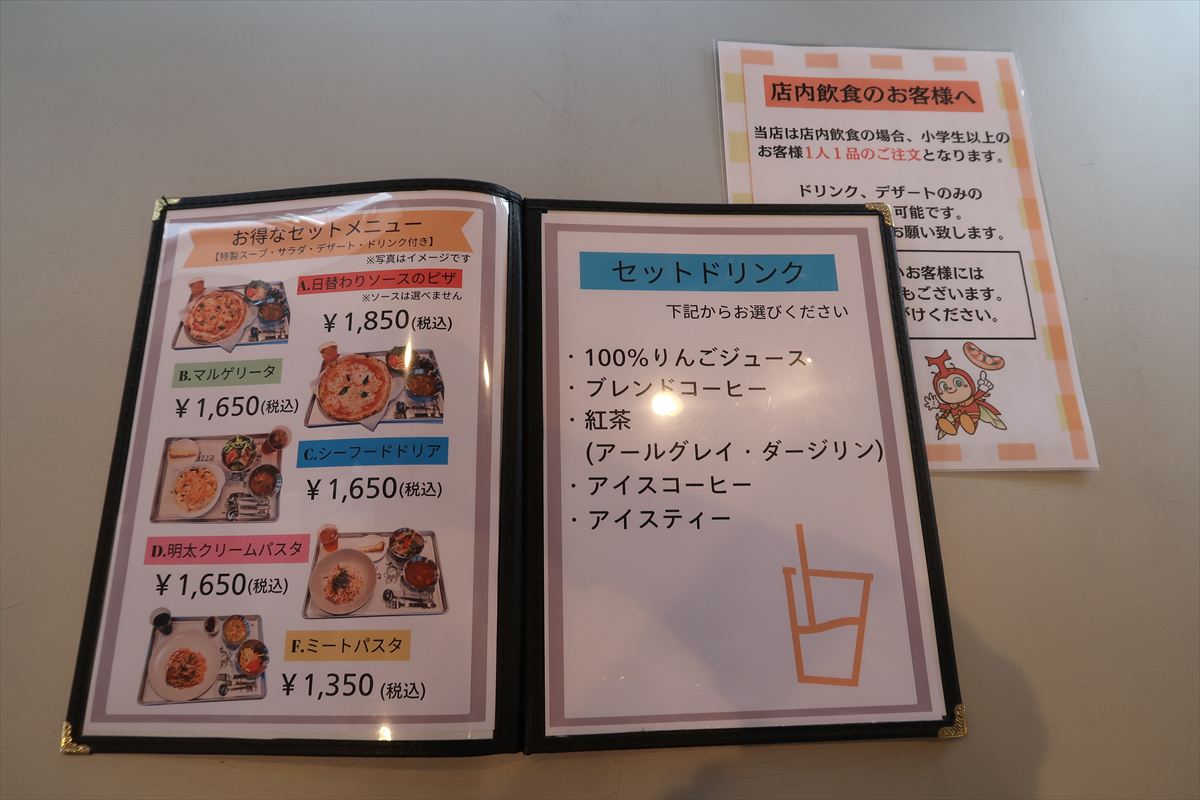 お得なセットメニュー
【特製スープ・サラダ・デザート・ドリンク付き】
※写真はイメージです
A.日替わりソースのピザ
※ソースは選べません
￥1,850(税込)
B.マルゲリータ
￥1,650(税込)
C.シーフードドリア
￥1,650(税込)
D.明太クリームパスタ
￥1,650(税込)
F.ミートパスタ
￥1,350(税込)
セットドリンク
下記からお選びください
・100%りんごジュース
・ブレンドコーヒー
・紅茶
(アールグレイ・ダージリン)
・アイスコーヒー
・アイスティー
店内飲食のお客様へ
当店は店内飲食の場合、小学生以上の
お客様1人1品のご注文となります。
ドリンク、デザートのみの
可能です。
お願い致します。
お客様には
もございます。
がけください。